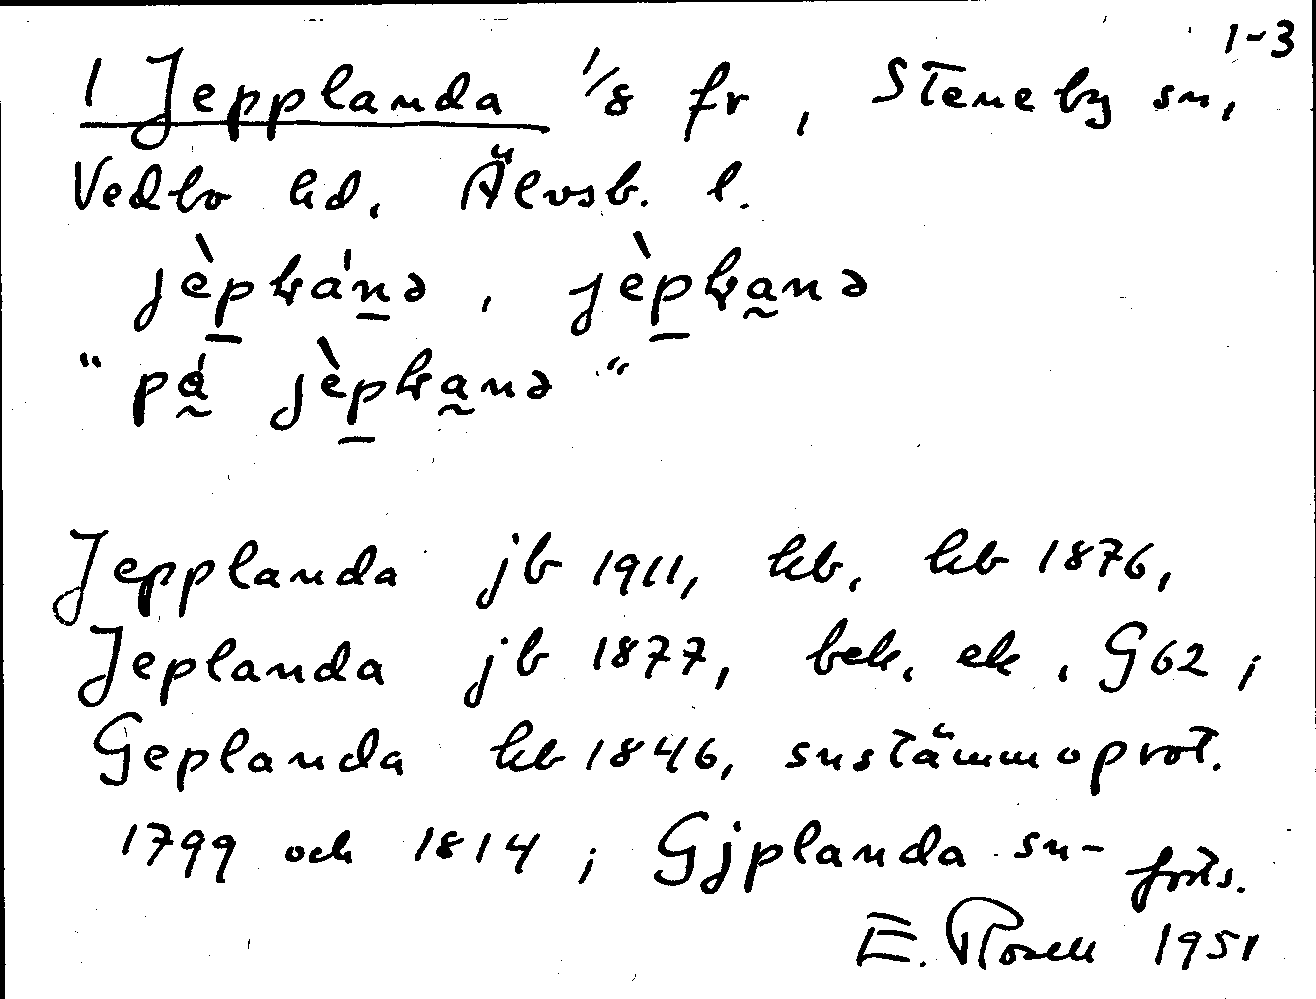 1-3
1 Jepplanda 1/8 fr, Steneby sn,
Vedbo hd, Älvsb. l.
Jepplanda jb 1911, kb, kb 1876,
Jeplanda jb 1877, bek, ek, G62;
Geplanda kb 1846, snstämmoprot.
1799 och 1814; Gjplanda sn- forts.
E. Rosell 1951